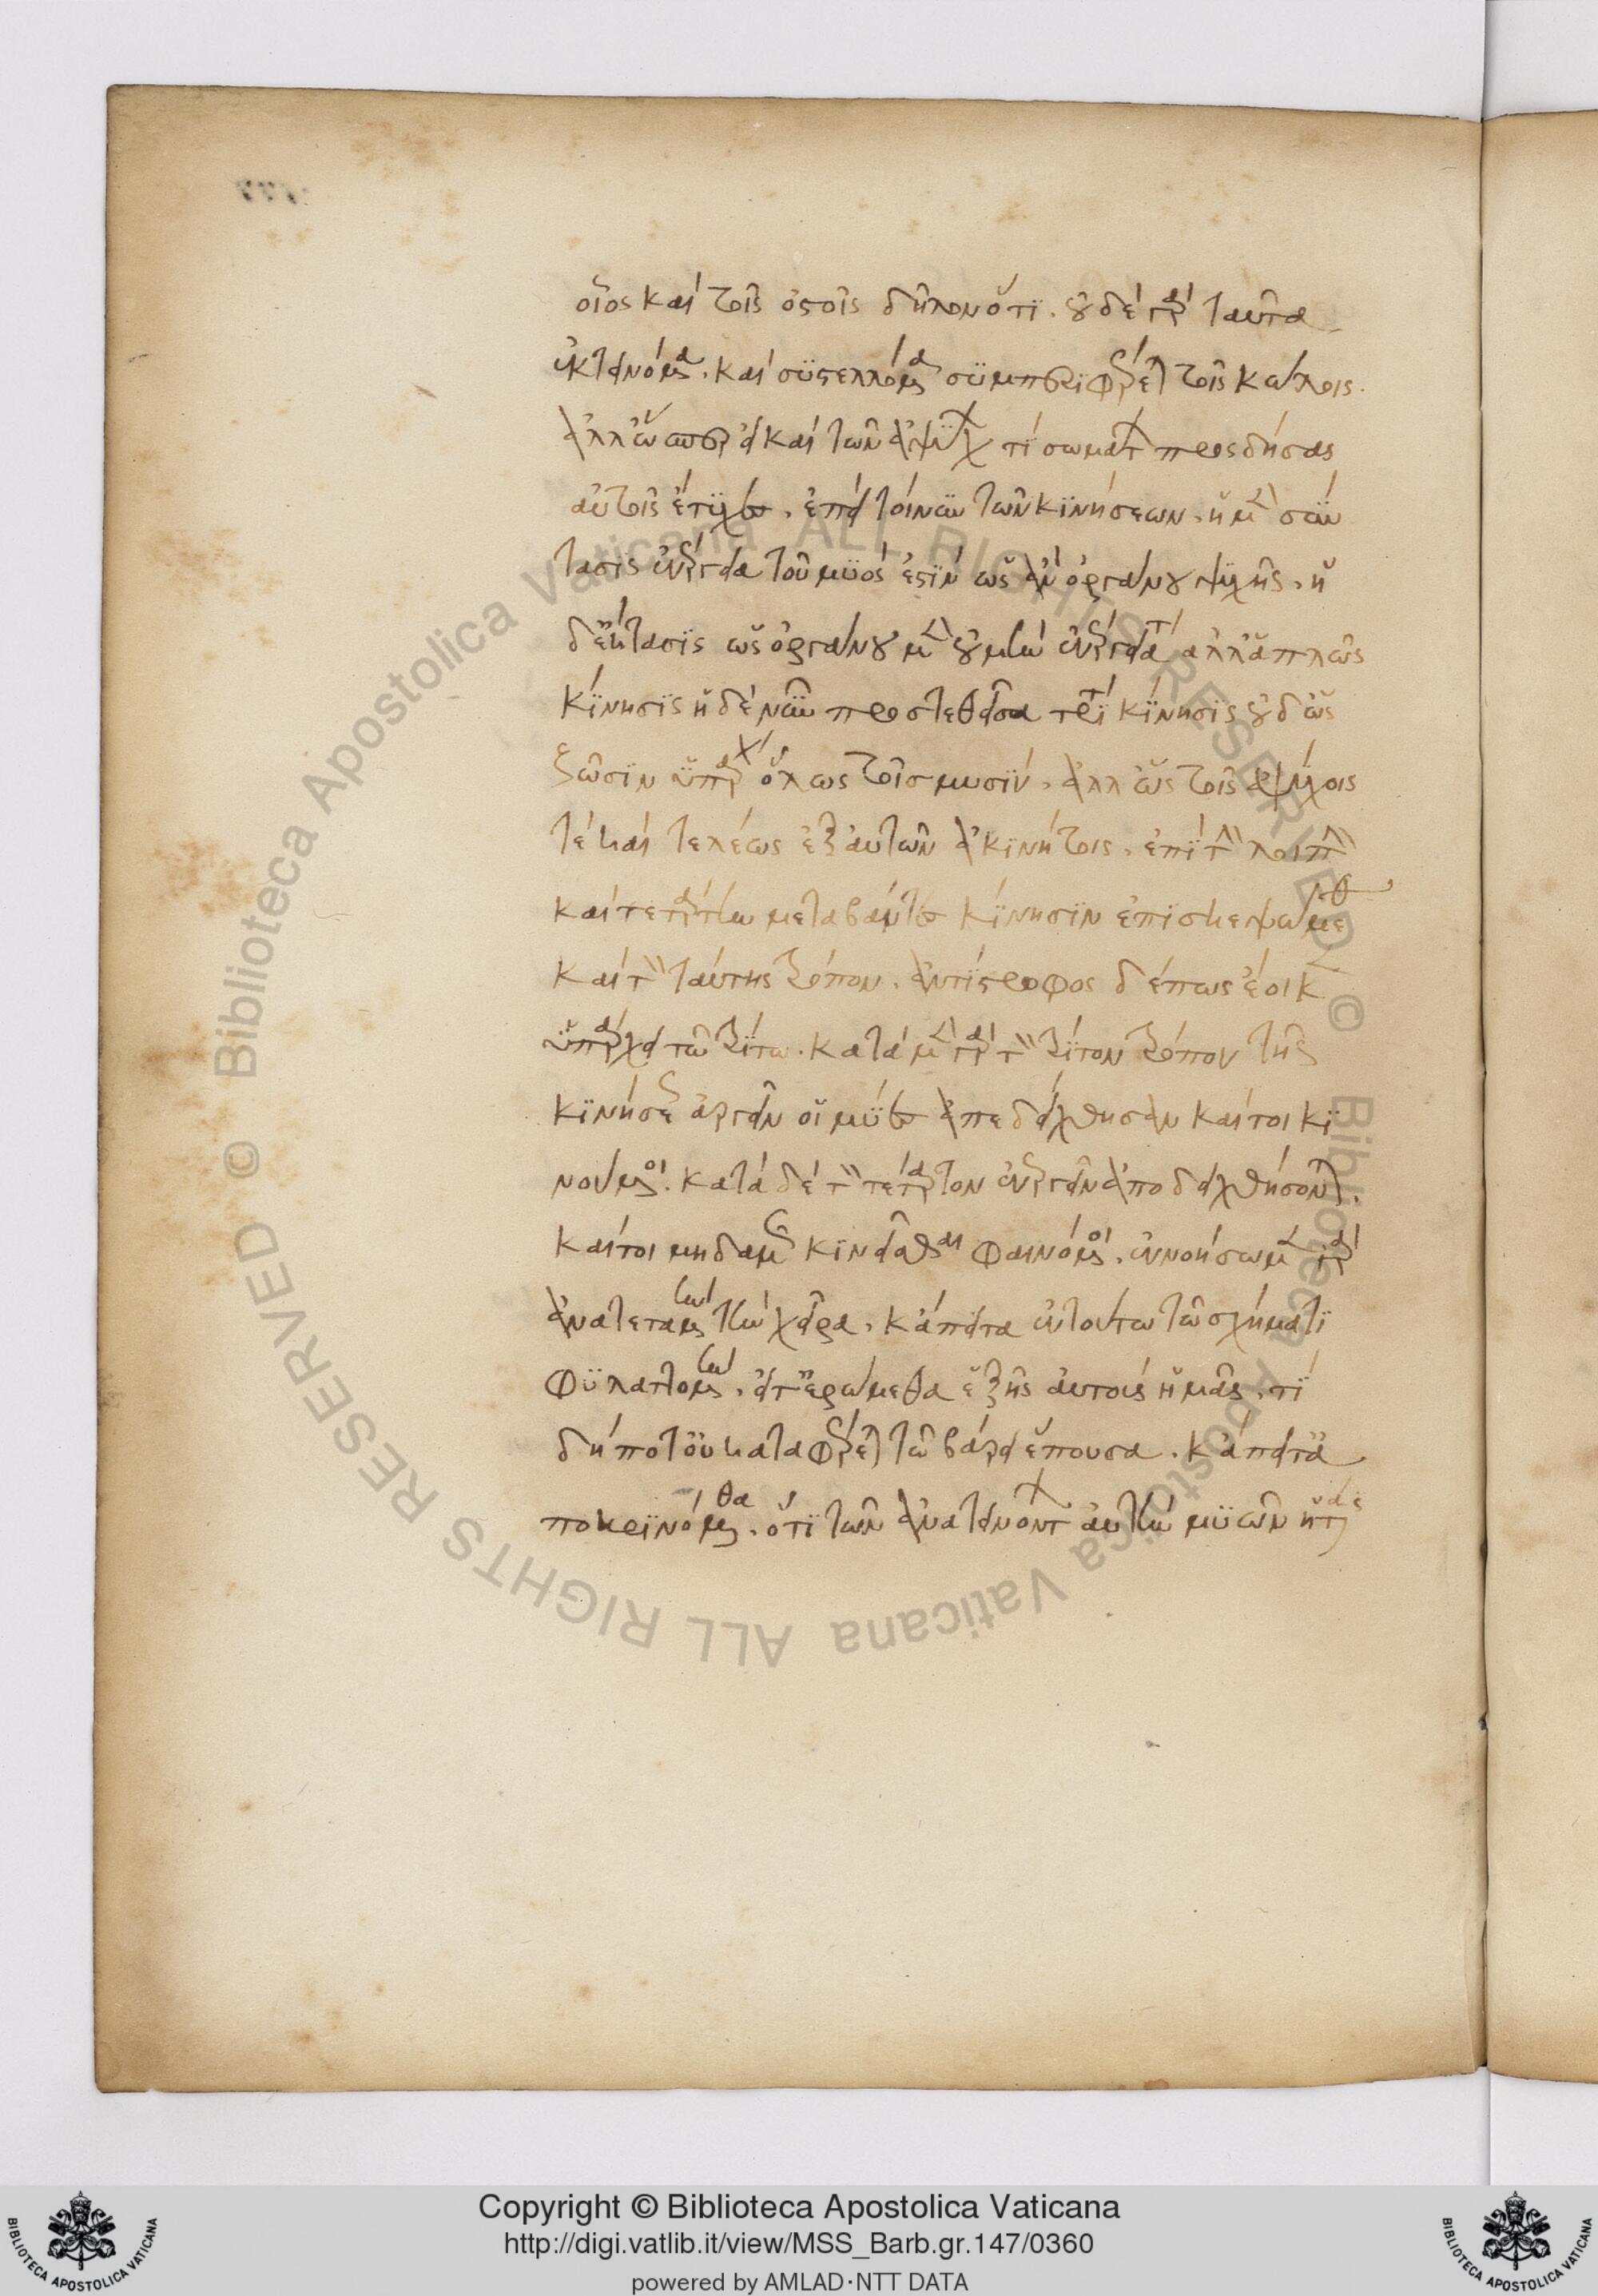 οἷος καὶ τοῖς ὀστοῖς δηλονότι. οὐδὲ γὰρ ταῦτα
ἐκτεινόμενα. καὶ συστελλόμενα συμπεριφέρεται τοῖς κώλοις.
ἀλλ' ὥσπερ εἰ καὶ τῶν ἀψύχων τι σωμάτων προσδήσας
αὐτοῖς ἔτυχες. ἐπεὶ τοίνυν τῶν κινήσεων. ἡ μὲν σύν
τασις ἐνέργεια τοῦ μυός ἐστιν ὡς ἂν ὀργάνου ψυχῆς. ἡ
δ' ἔκτασις ὡς ὀργάνου μὲν οὐ μὴν ἐνέργειά τις ἀλλ' ἁπλῶς
κίνησις ἡ δὲ νῦν προστεθεῖσα τρίτη κίνησις οὐδ' ὡς
ζῶσιν ὑπάρχει ὅλως τοῖς μυσίν. ἀλλ' ὡς τοῖς ἀψύχοις
τε καὶ τελέως ἐξ αὑτῶν ἀκινήτοις. ἐπὶ τὴν λοιπὴν
καὶ τετάρτην μεταβάντες κίνησιν ἐπισκεψώμεθα
καὶ τὸν ταύτης τρόπον. ἀντίστροφος δέ πως ἔοικεν
ὑπάρχειν τῷ τρίτῳ. κατὰ μὲν γὰρ τὸν τρίτον τρόπον τῆς
κινήσεως ἀργεῖν οἱ μύες ἀπεδείχθησαν καίτοι κι
νούμενοι. κατὰ δὲ τὸν τέταρτον ἐνεργεῖν ἀποδειχθήσονται.
καίτοι μηδαμῶς κινεῖσθαι φαινόμενοι. ἐννοήσωμεν γὰρ
ἀνατεταμένην τὴν χεῖρα. κἄπειτα ἐν τούτῳ τῷ σχήματι
φυλαττομένην. εἶτ' ἐρώμεθα ἑξῆς αὐτοὺς ἡμᾶς. τί
δήποτ' οὐ καταφέρεται τῷ βάρει ἕπουσα. κἄπειτα
ποκρινόμεθα. ὅτι τῶν ἀνατεινόντων αὐτὴν μυῶν ἡ τάσις